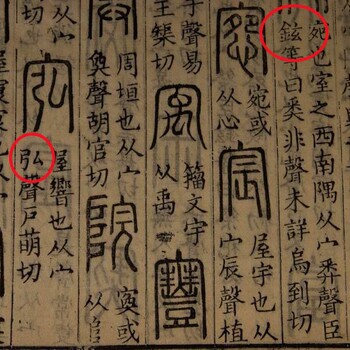 宛也室之西南隅从宀𢍏聲臣
鉉等曰𢍏非聲未詳烏到切
惌
宛或
从心
宸
屋宇也从
宀辰聲植
聲易
王榘切
㝢
籀文宇
从禹
寷
周垣也从宀
奐聲胡官切
院
寏或
从𨸏
宖
屋響也从宀
弘聲戶萌切